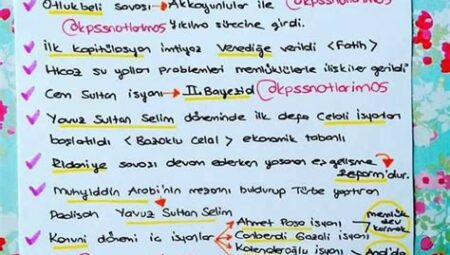 Otlukbeli savaşı → Akkoyunlular ile @kpssnotlarim05
Yıkılma sürecine girdi.
@kpssnotlarim05
İlk kapitülasyon imtiyaz Venediğe verildi <Fatih>
Hicaz su yolları problemleri memlüklülerle ilişkiler gerildi
Cem Sultan isyanı → II.Bayezid @kpssnotlarim05
Yavuz Sultan Selim döneminde ilk defa Celali isyanları
başlatıldı <Bozoklu Celal> ekonomik tabanlı
Ridaniye savaşı devam ederken yaşanan
Reform'dur.
Muhyiddin Arabi'nin mezarını buldurup Türbe yaptıran
Padişah Yavuz Sultan Selim
Kanuni dönemi iç isyanlar → Ahmet Paşa isyanı
Canberdi Gazali isyanı
Kalenderoğlu isyanı
memlük
dev
kurmak